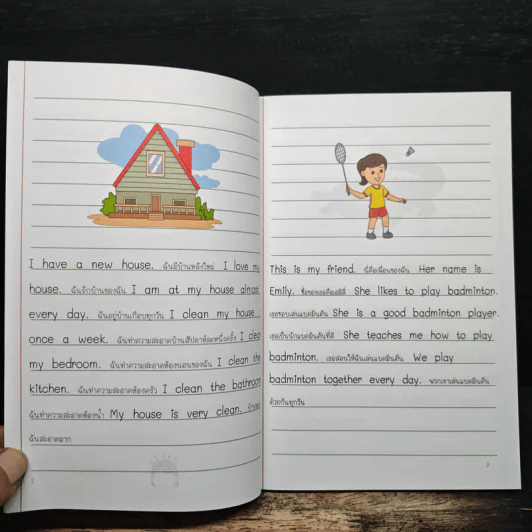 I have a new house. ฉันมีบ้านหลังใหม่ I love my
house. ฉันรักบ้านของฉัน I am at my house almost
every day. ฉันอยู่บ้านเกือบทุกวัน I clean my house
once a week. ฉันทำความสะอาดบ้านสัปดาห์ละหนึ่งครั้ง I clean
my bedroom. ฉันทำความสะอาดห้องนอนของฉัน I clean the
kitchen. ฉันทำความสะอาดห้องครัว I clean the bathroom.
ฉันทำความสะอาดห้องน้ำ My house is very clean.
ฉันสะอาดมาก
2
This is my friend. นี่คือเพื่อนของฉัน Her name is
Emily. ชื่อของเธอคือเอมิลี่ She likes to play badminton.
เธอชอบเล่นแบดมินตัน She is a good badminton player.
เธอเป็นนักแบดมินตันที่ดี She teaches me how to play
badminton. เธอสอนให้ฉันเล่นแบดมินตัน We play
badminton together every day. พวกเราเล่นแบดมินตัน
ด้วยกันทุกวัน
3